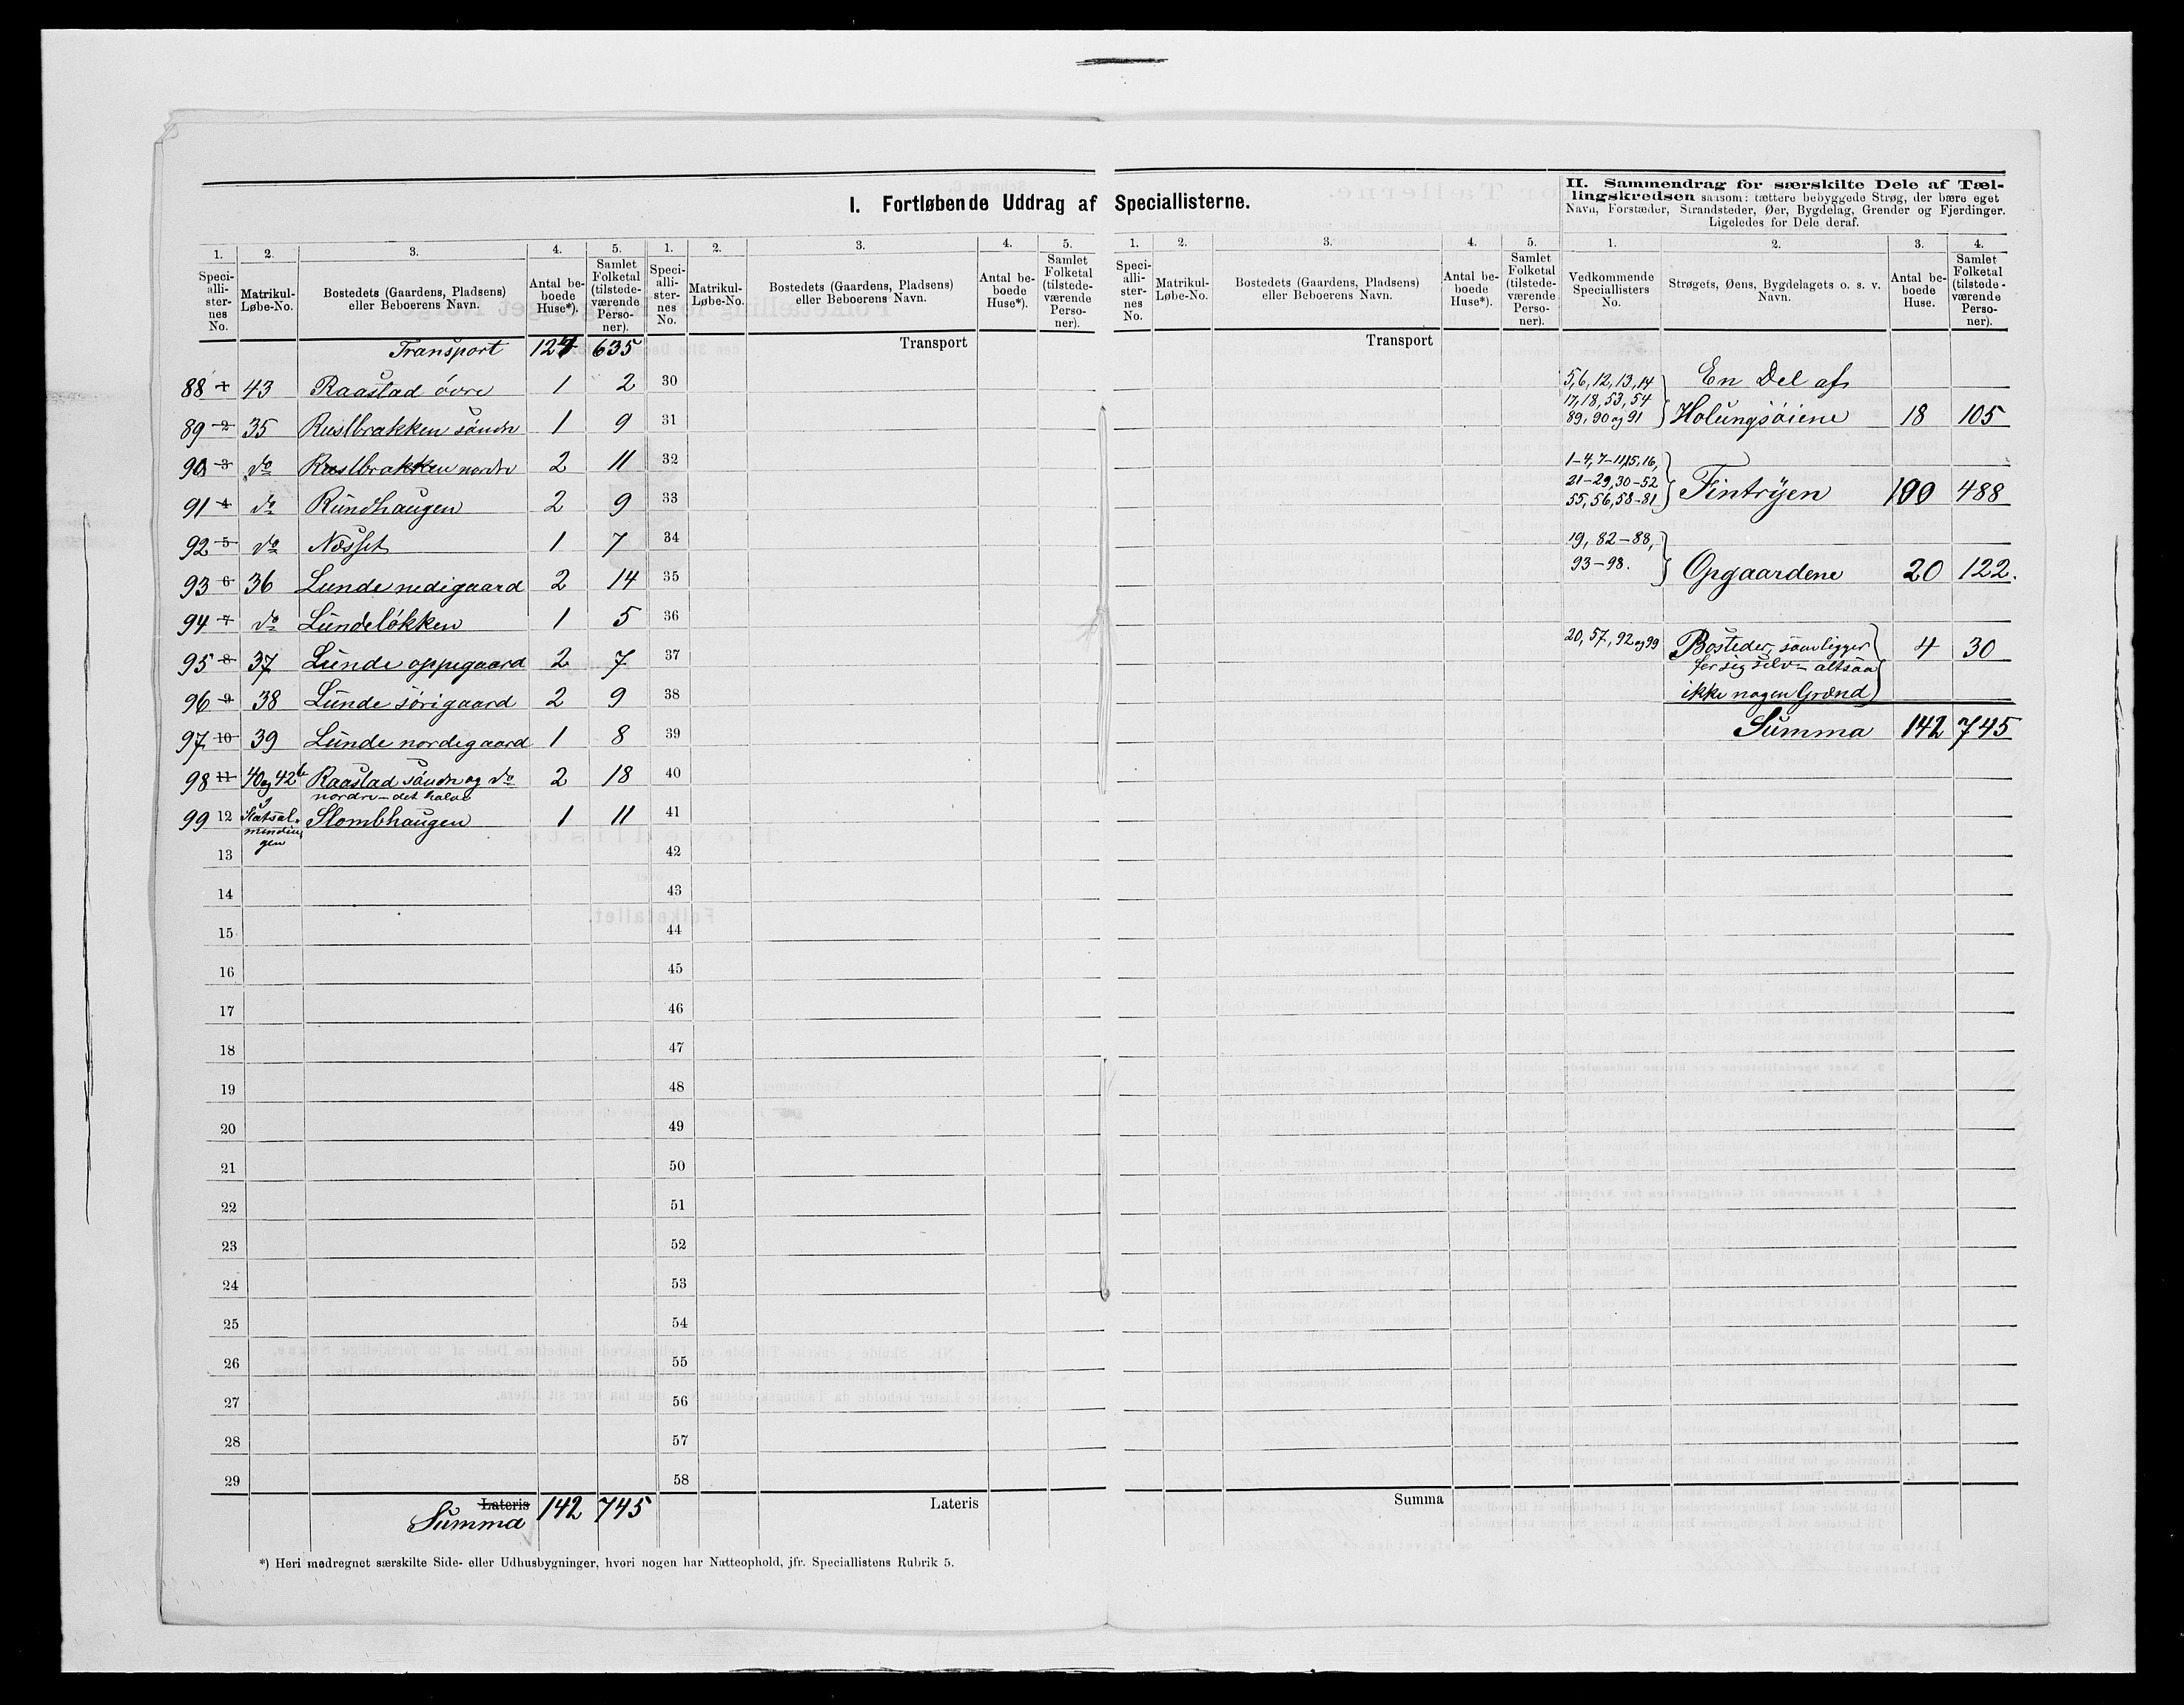 I. Fortløbende Uddrag af Speciallisterne.
II. Sammendrag for særskilte Dele af Tæl-
lingskredsen saasom: tættere bebyggede Strøg, der bære eget
Navn, Forstæder, Strandsteder, Øer, Bygdelag, Grender og Fjerdinger.
Ligeledes for Dele deraf.
1. 2. 3. 4. 5. 1. 2. 3. 4. 5. 1. 2. 3. 4. 5. 1. 2. 3. 4.
Speci-alli-ster-nes No. Matrikul-Løbe-No. Bostedets (Gaardens, Pladsens) eller Beboerens Navn. Antal be-boede Huse*). Samlet Folketal (tilstede-værende Perso-ner).
Speci-alli-ster-nes No. Matrikul-Løbe-No. Bostedets (Gaardens, Pladsens) eller Beboerens Navn. Antal be-boede Huse*). Samlet Folketal (tilstede-værende Perso-ner).
Speci-alli-ster-nes No. Matrikul-Løbe-No. Bostedets (Gaardens, Pladsens) eller Beboerens Navn. Antal be-boede Huse*). Samlet Folketal (tilstede-værende Perso-ner).
Vedkommende Speciallisters No. Strøgets, Øens, Bygdelagets o. s. v. Navn. Antal be-boede Huse. Samlet Folketal (tilstede-værende Perso-ner).
Transport 127 635 Transport Transport
88 1 43 Raastad övre 1 2 30
89 2 35 Rustbrakken søndre 1 9 31
90 3 do Rustbrakken nordre 2 11 32
91 4 do Rundhaugen 2 9 33
92 5 do Næsset 1 7 34
93 6 36 Lunde nedigaard 2 14 35
94 7 do Lundeløkken 1 5 36
95 8 37 Lunde oppegaard 2 7 37
96 9 38 Lunde sørigaard 2 9 38
97 10 39 Lunde nordigaard 1 8 39
98 11 40 og 42b Raastad søndre og do 2 18 40
nordre – det halve
99 12 Statsal- Slombhaugen 1 11 41
mindin
gen
13 42
14 43
15 44
16 45
17 46
18 47
19 48
20 49
21 50
22 51
23 52
24 53
25 54
26 55
27 56
28 57
29 58
Lateris 142 745 Lateris Summa
Summa
5, 6, 12, 13, 14 En Del af
17, 18, 53, 54
89, 90 og 91 Holungsøiene 18 105
1–4, 7–11, 15, 16,
21–29, 30–52 Tintryen 100 488
55, 56, 58–81
19, 82–88,
93–98. Opgaardene 20 122.
20, 57, 92 og 99 Bosteder som ligger 4 30
for sig selv – altsaa
ikke nogen Grænd
Summa 142 745
*) Heri medregnet særskilte Side- eller Udhusbygninger, hvori nogen har Natteophold, jfr. Speciallistens Rubrik 5.